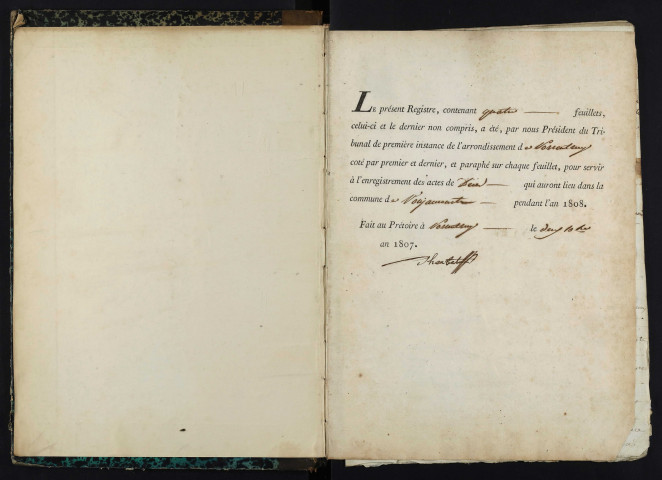 Le présent Registre, contenant quatre feuillets,
celui-ci et le dernier non compris, a été, par nous Président du Tri-
bunal de première instance de l'arrondissement de
coté par premier et dernier, et paraphé sur chaque feuillet, pour servir
à l'enregistrement des actes de qui auront lieu dans la
commune de pendant l'an 1808.
Fait au Prétoire à le
an 1807.